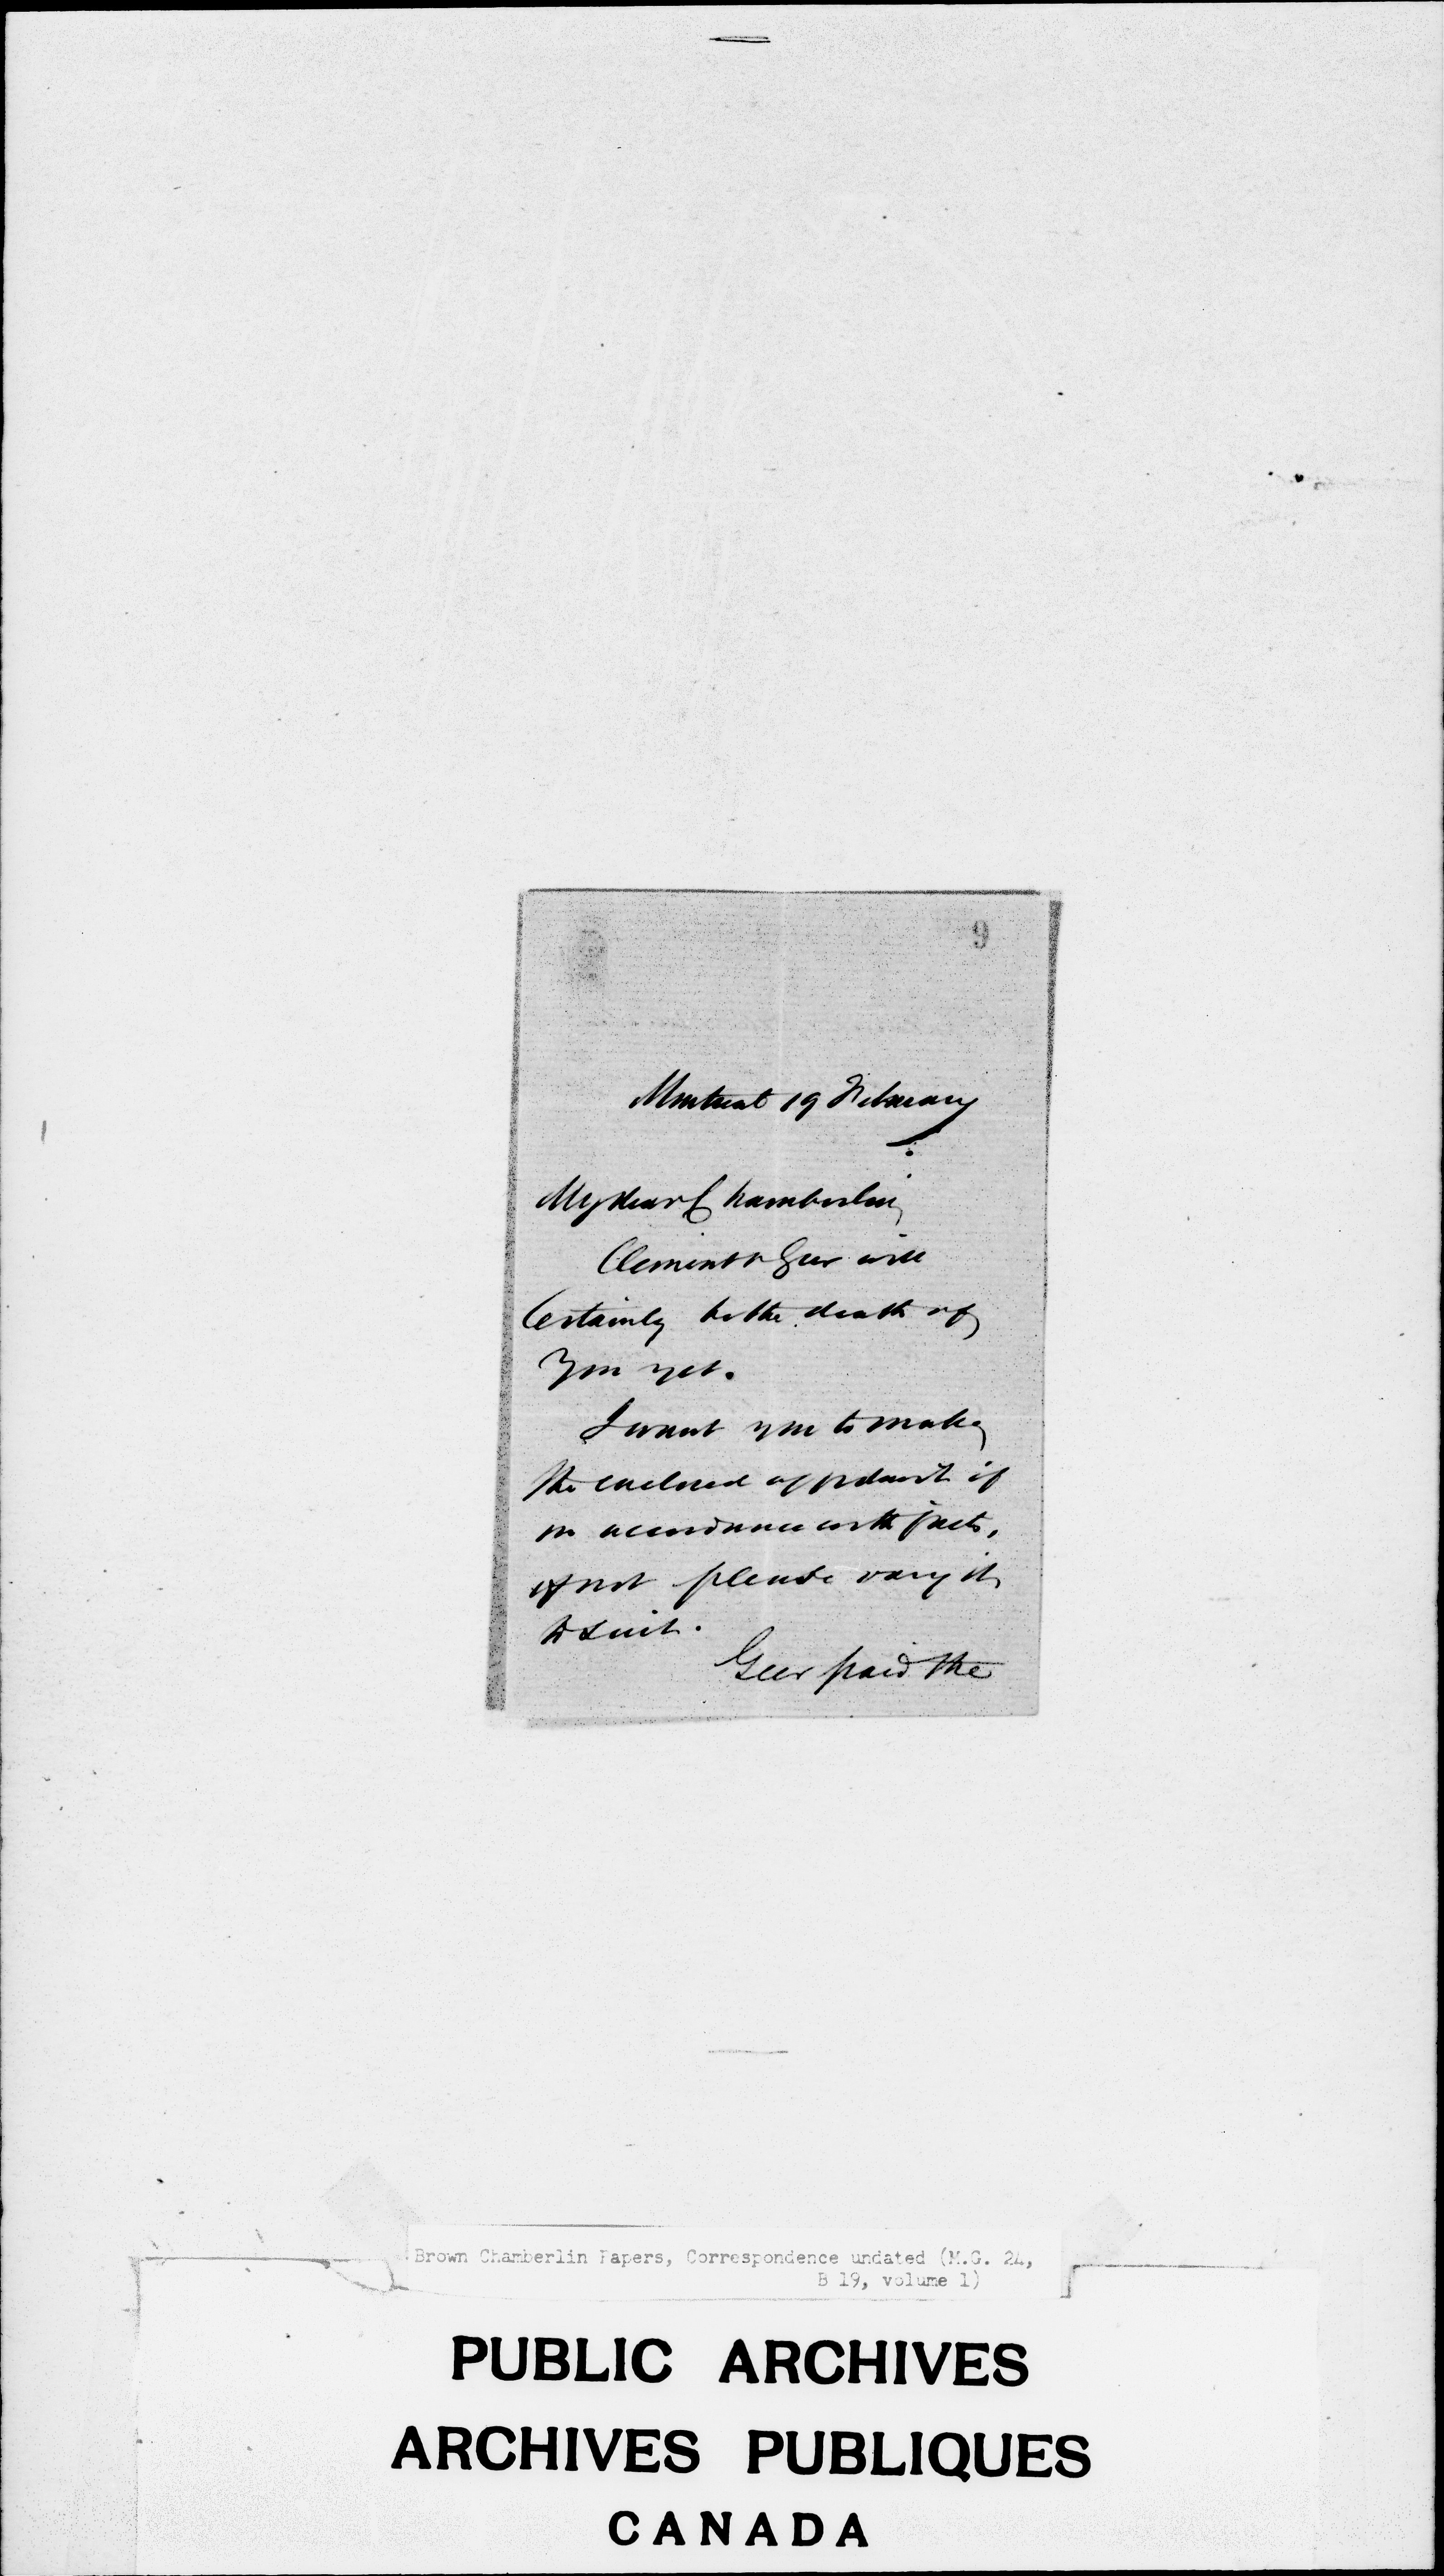 9
Montreal 19 February
My dear Chamberlin,
Clement v Geer will
Certainly be the death of
you yet.
I want you to make
the enclosed affidavit if
in accordance with facts,
if not please vary it
to suit.
Geer paid the
Brown Chamberlin Papers, Correspondence undated (M.G. 24,
B 19, volume 1)
PUBLIC ARCHIVES
ARCHIVES PUBLIQUES
CANADA